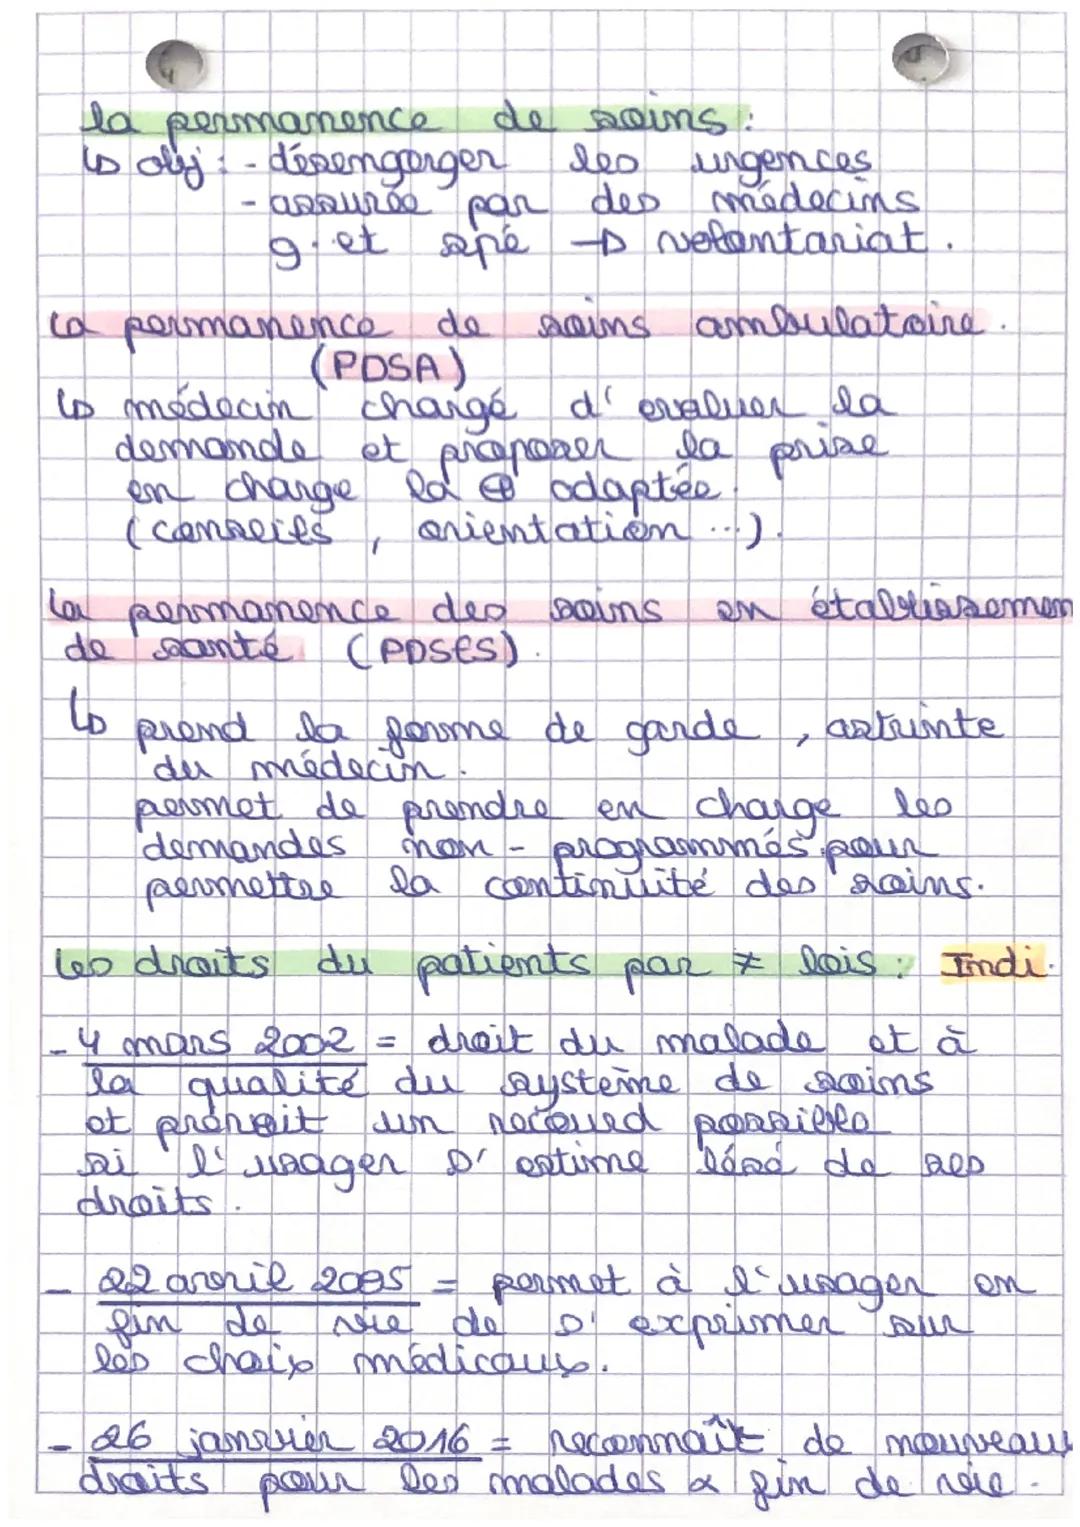 la permanence de soins :
↳ obj : - désengorger les urgences
- assurée par des médecins
g. et spé → volontariat.
La permanence de soins ambulatoire.
(PDSA)
↳ médecin chargé d'evaluer la
demande et proposer la prise
en charge la ⊕ adaptée.
(conseils, orientation ...).
La permanence des soins en établissemen
de santé (PDSES).
↳ prend la forme de garde, astrinte
du médecin.
permet de prendre en charge les
demandes non-programmés pour
permettre la continuité des soins.
Les droits du patients par ≠ lois : Indi.
- 4 mars 2002 = droit du malade et à
la qualité du système de soins
et prévoit un recoued possible
si l'usager s'estime lésé de ses
droits.
- 22 avril 2005 = permet à l'usager en
fin de vie de s'exprimer sur
les choix médicaux.
- 26 janvier 2016 = reconnaît de nouveaux
droits pour les malades & fin de vie.